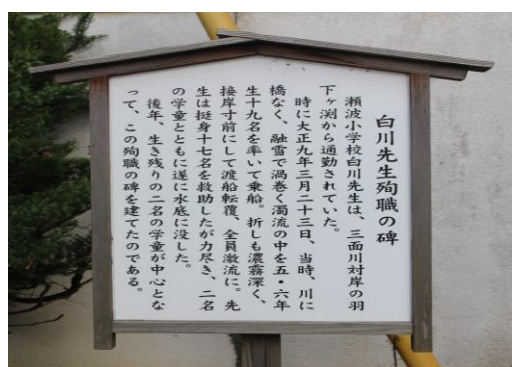 白川先生殉職の碑
瀬波小学校白川先生は、三面川対岸の羽
下ヶ渕から通勤されていた。
時に大正九年三月二十三日、当時、川に
橋なく、融雪で渦巻く濁流の中を五・六年
生十九名を率いて乗船。折しも濃霧深く、
接岸寸前にして渡船転覆、全員激流に。先
生は挺身十七名を救助したが力尽き、二名
の学童とともに遂に水底に没した。
後年、生き残りの二名の学童が中心とな
って、この殉職の碑を建てたのである。